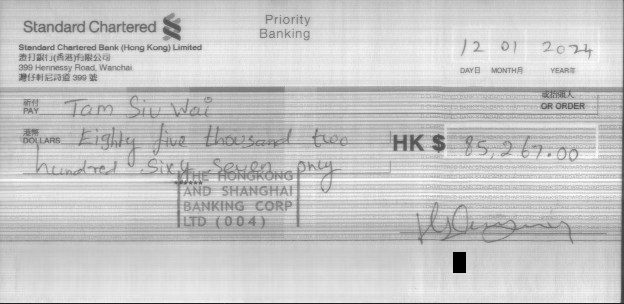 Standard Chartered
Priority
Banking
Standard Chartered Bank (Hong Kong) Limited
渣打銀行(香港)有限公司
399 Hennessy Road, Wanchai
灣仔軒尼詩道 399 號
12 01 2024
DAY日 MONTH月 YEAR年
祈付
PAY Tam Siu Wai
或抬頭人
OR ORDER
港幣
DOLLARS Eighty five thousand two
HK $ 85,267.00
hundred Sixy Seven only
THE HONGKONG
AND SHANGHAI
BANKING CORP
LTD (004)